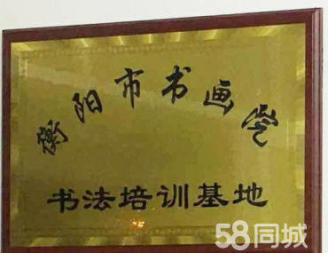 衡阳市书画院
书法培训基地
58同城